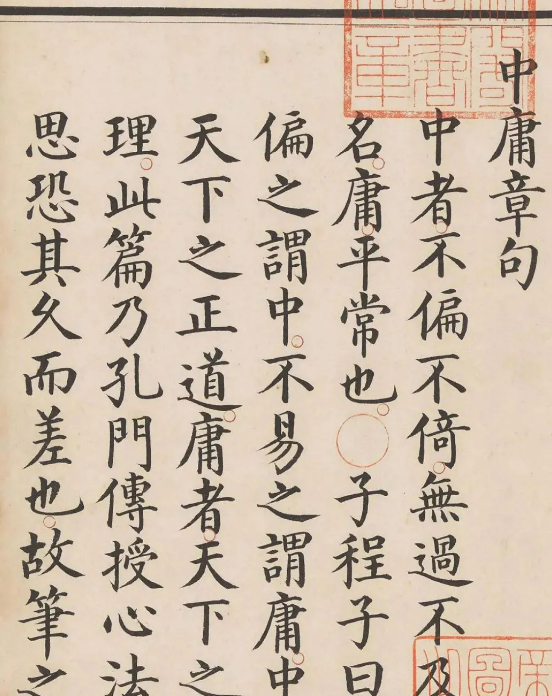 中庸章句
中者不偏不倚無過不及
名庸平常也○子程子曰
偏之謂中不易之謂庸中
天下之正道庸者天下之
理此篇乃孔門傳授心法
思恐其久而差也故筆之